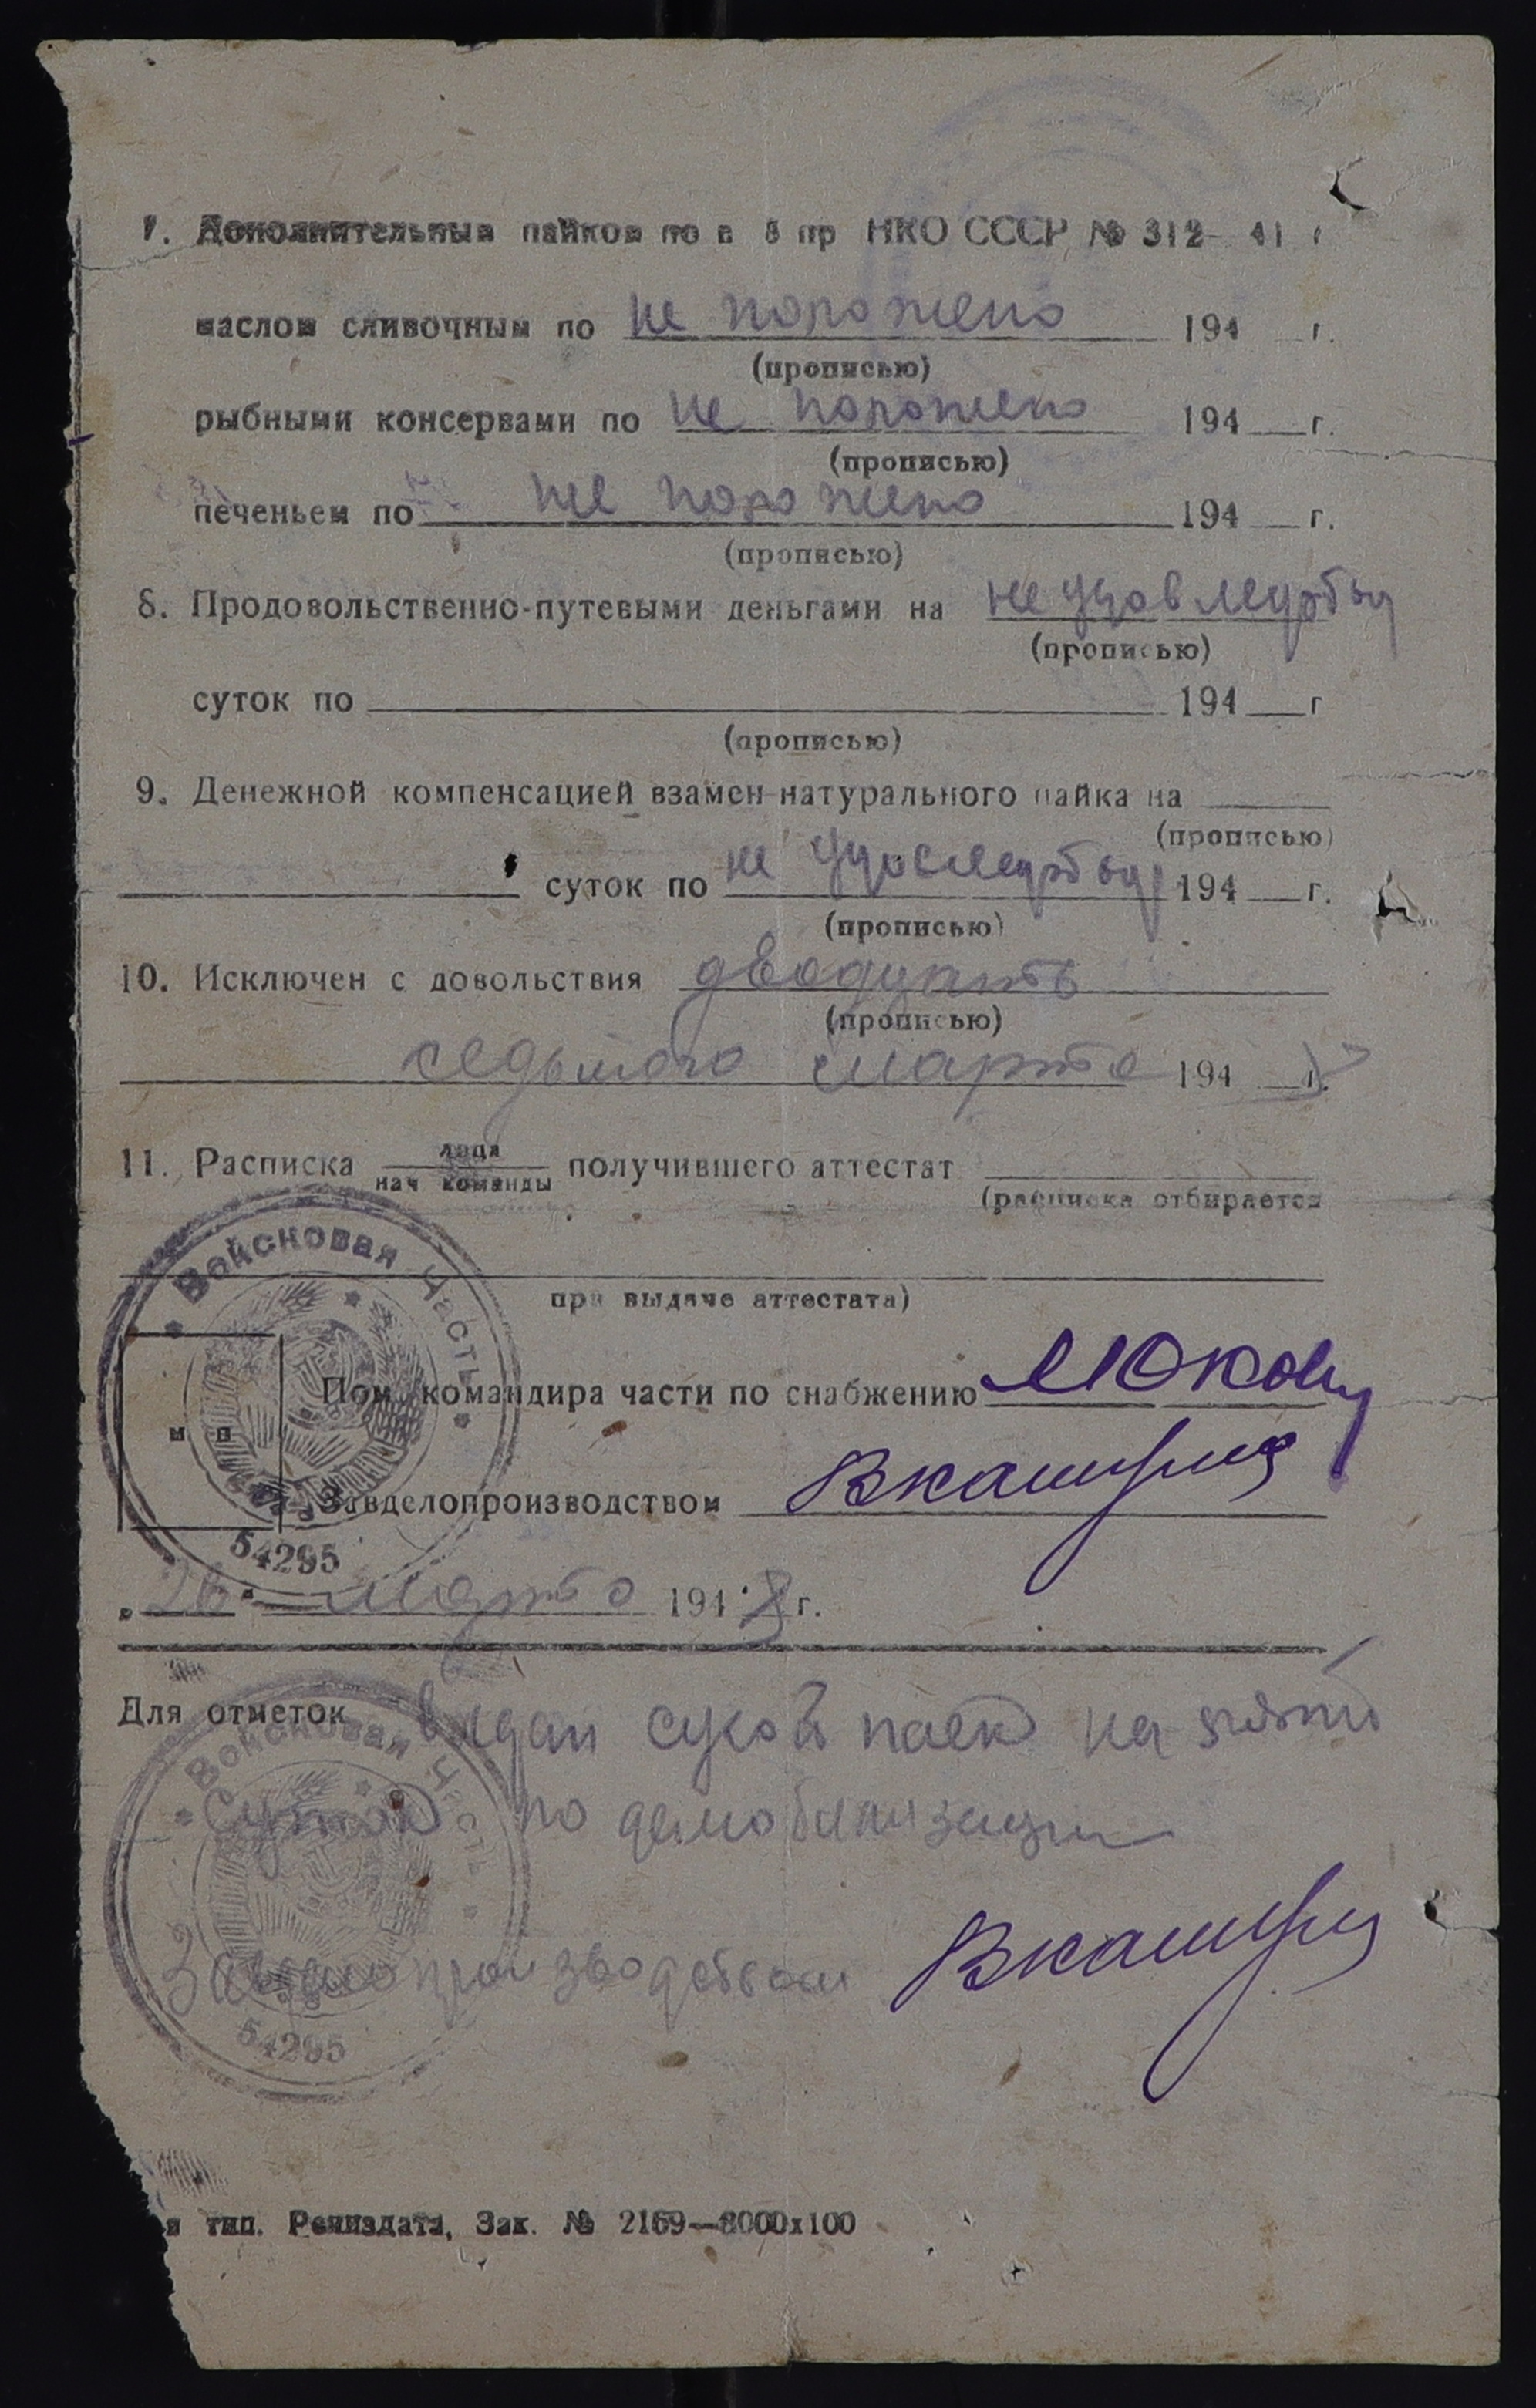 7. Дополнительным пайком по п 3 пр НКО СССР № 312— 41 г
маслом сливочным по не положено 194 г.
(прописью)
рыбными консервами по не положено 194 г.
(прописью)
печеньем по не положено 194 г.
(прописью)
8. Продовольственно-путевыми деньгами на не удовлетв
(прописью)
суток по 194 г
(прописью)
9. Денежной компенсацией взамен натурального пайка на
(прописью)
суток по не 194 г.
(прописью)
10. Исключен с довольствия двадцать
(прописью)
седьмого марта 194 г.
11. Расписка лица
нач команды получившего аттестат
(расписка отбирается
при выдаче аттестата)
Войсковая Часть
54295
м п
Пом. командира части по снабжению
Завделопроизводством
„26“ марта 1948 г.
Для отметок выдан сухой паек на пять
суток по демобилизации
Войсковая Часть
54295
Завделопроизводством
я тип. Речиздата, Зак. № 2169—8000x100